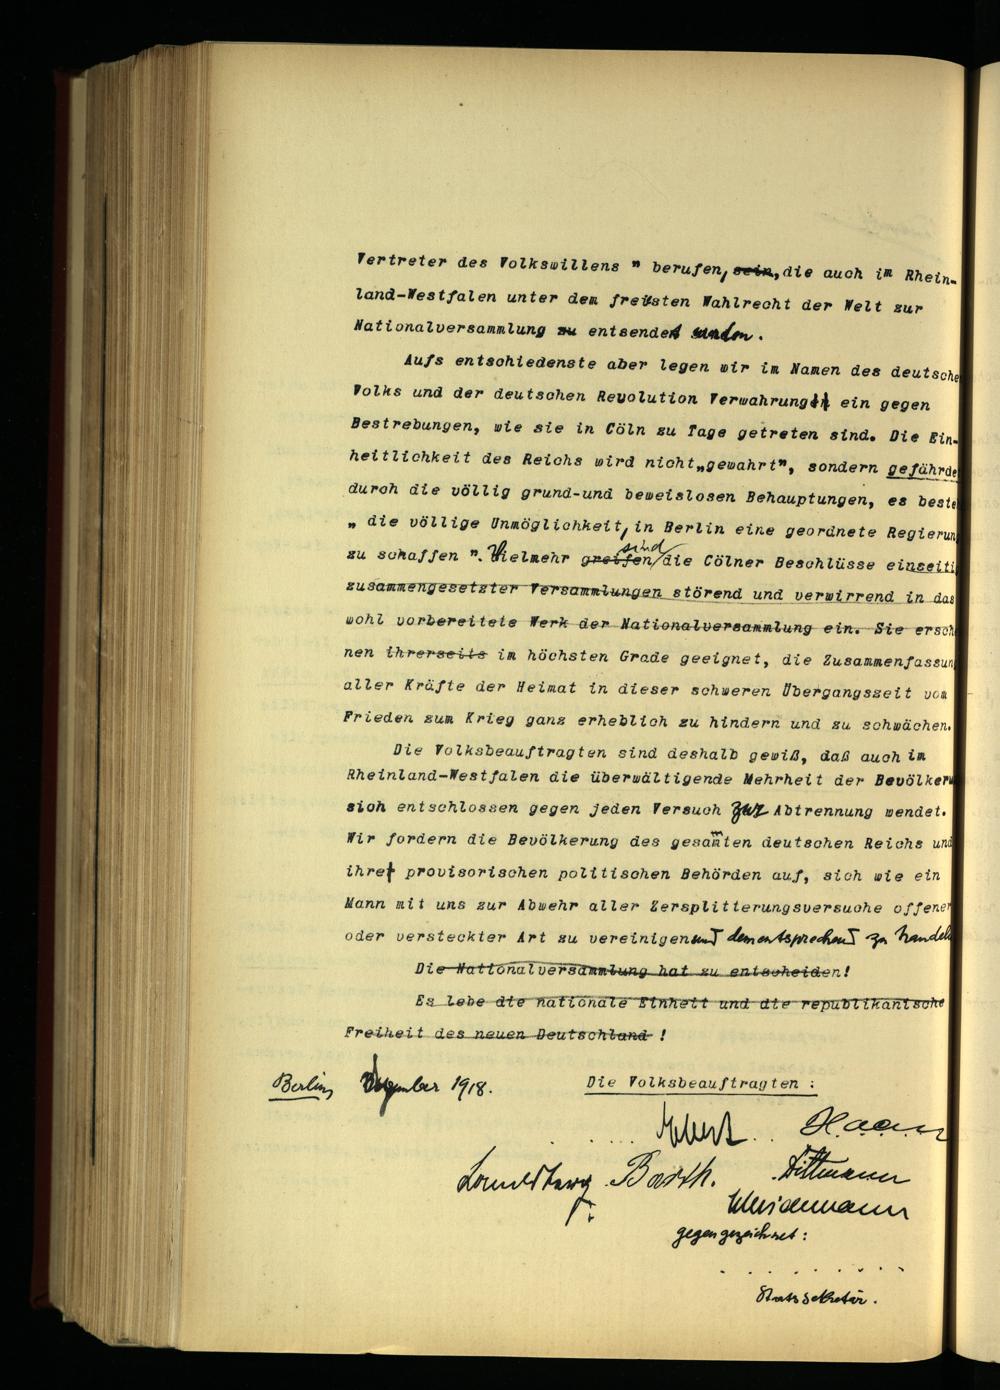 Vertreter des Volkswillens " berufen, sein, die auch im Rhein-
land-Westfalen unter dem freisten Wahlrecht der Welt zur
Nationalversammlung zu entsendet werden.
Aufs entschiedenste aber legen wir im Namen des deutsche
Volks und der deutschen Revolution Verwahrung ein gegen
Bestrebungen, wie sie in Cöln zu Tage getreten sind. Die Ein-
heitlichkeit des Reichs wird nicht „gewahrt", sondern gefährde
durch die völlig grund-und beweislosen Behauptungen, es beste
„ die völlige Unmöglichkeit, in Berlin eine geordnete Regierun
sind
zu schaffen ". Vielmehr greifen die Cölner Beschlüsse einseiti
zusammengesetzter Versammlungen störend und verwirrend in das
wohl vorbereitete Werk der Nationalversammlung ein. Sie ersch
nen ihrerseits im höchsten Grade geeignet, die Zusammenfassun
aller Kräfte der Heimat in dieser schweren Übergangszeit vom
Frieden zum Krieg ganz erheblich zu hindern und zu schwächen.
Die Volksbeauftragten sind deshalb gewiß, daß auch im
Rheinland-Westfalen die überwältigende Mehrheit der Bevölkeru
sich entschlossen gegen jeden Versuch zur Abtrennung wendet.
Wir fordern die Bevölkerung des gesamten deutschen Reichs und
ihre provisorischen politischen Behörden auf, sich wie ein
Mann mit uns zur Abwehr aller Zersplitterungsversuche offener
oder versteckter Art zu vereinigen und dementsprechend zu handeln
Die Nationalversammlung hat zu entscheiden!
Es lebe die nationale Einheit und die republikanische
Freiheit des neuen Deutschland !
Berlin, Dezember 1918. Die Volksbeauftragten :
Ebert Haase
Landsberg Barth. Dittmann
Scheidemann
gegengezeichnet:
Staatssekretär.